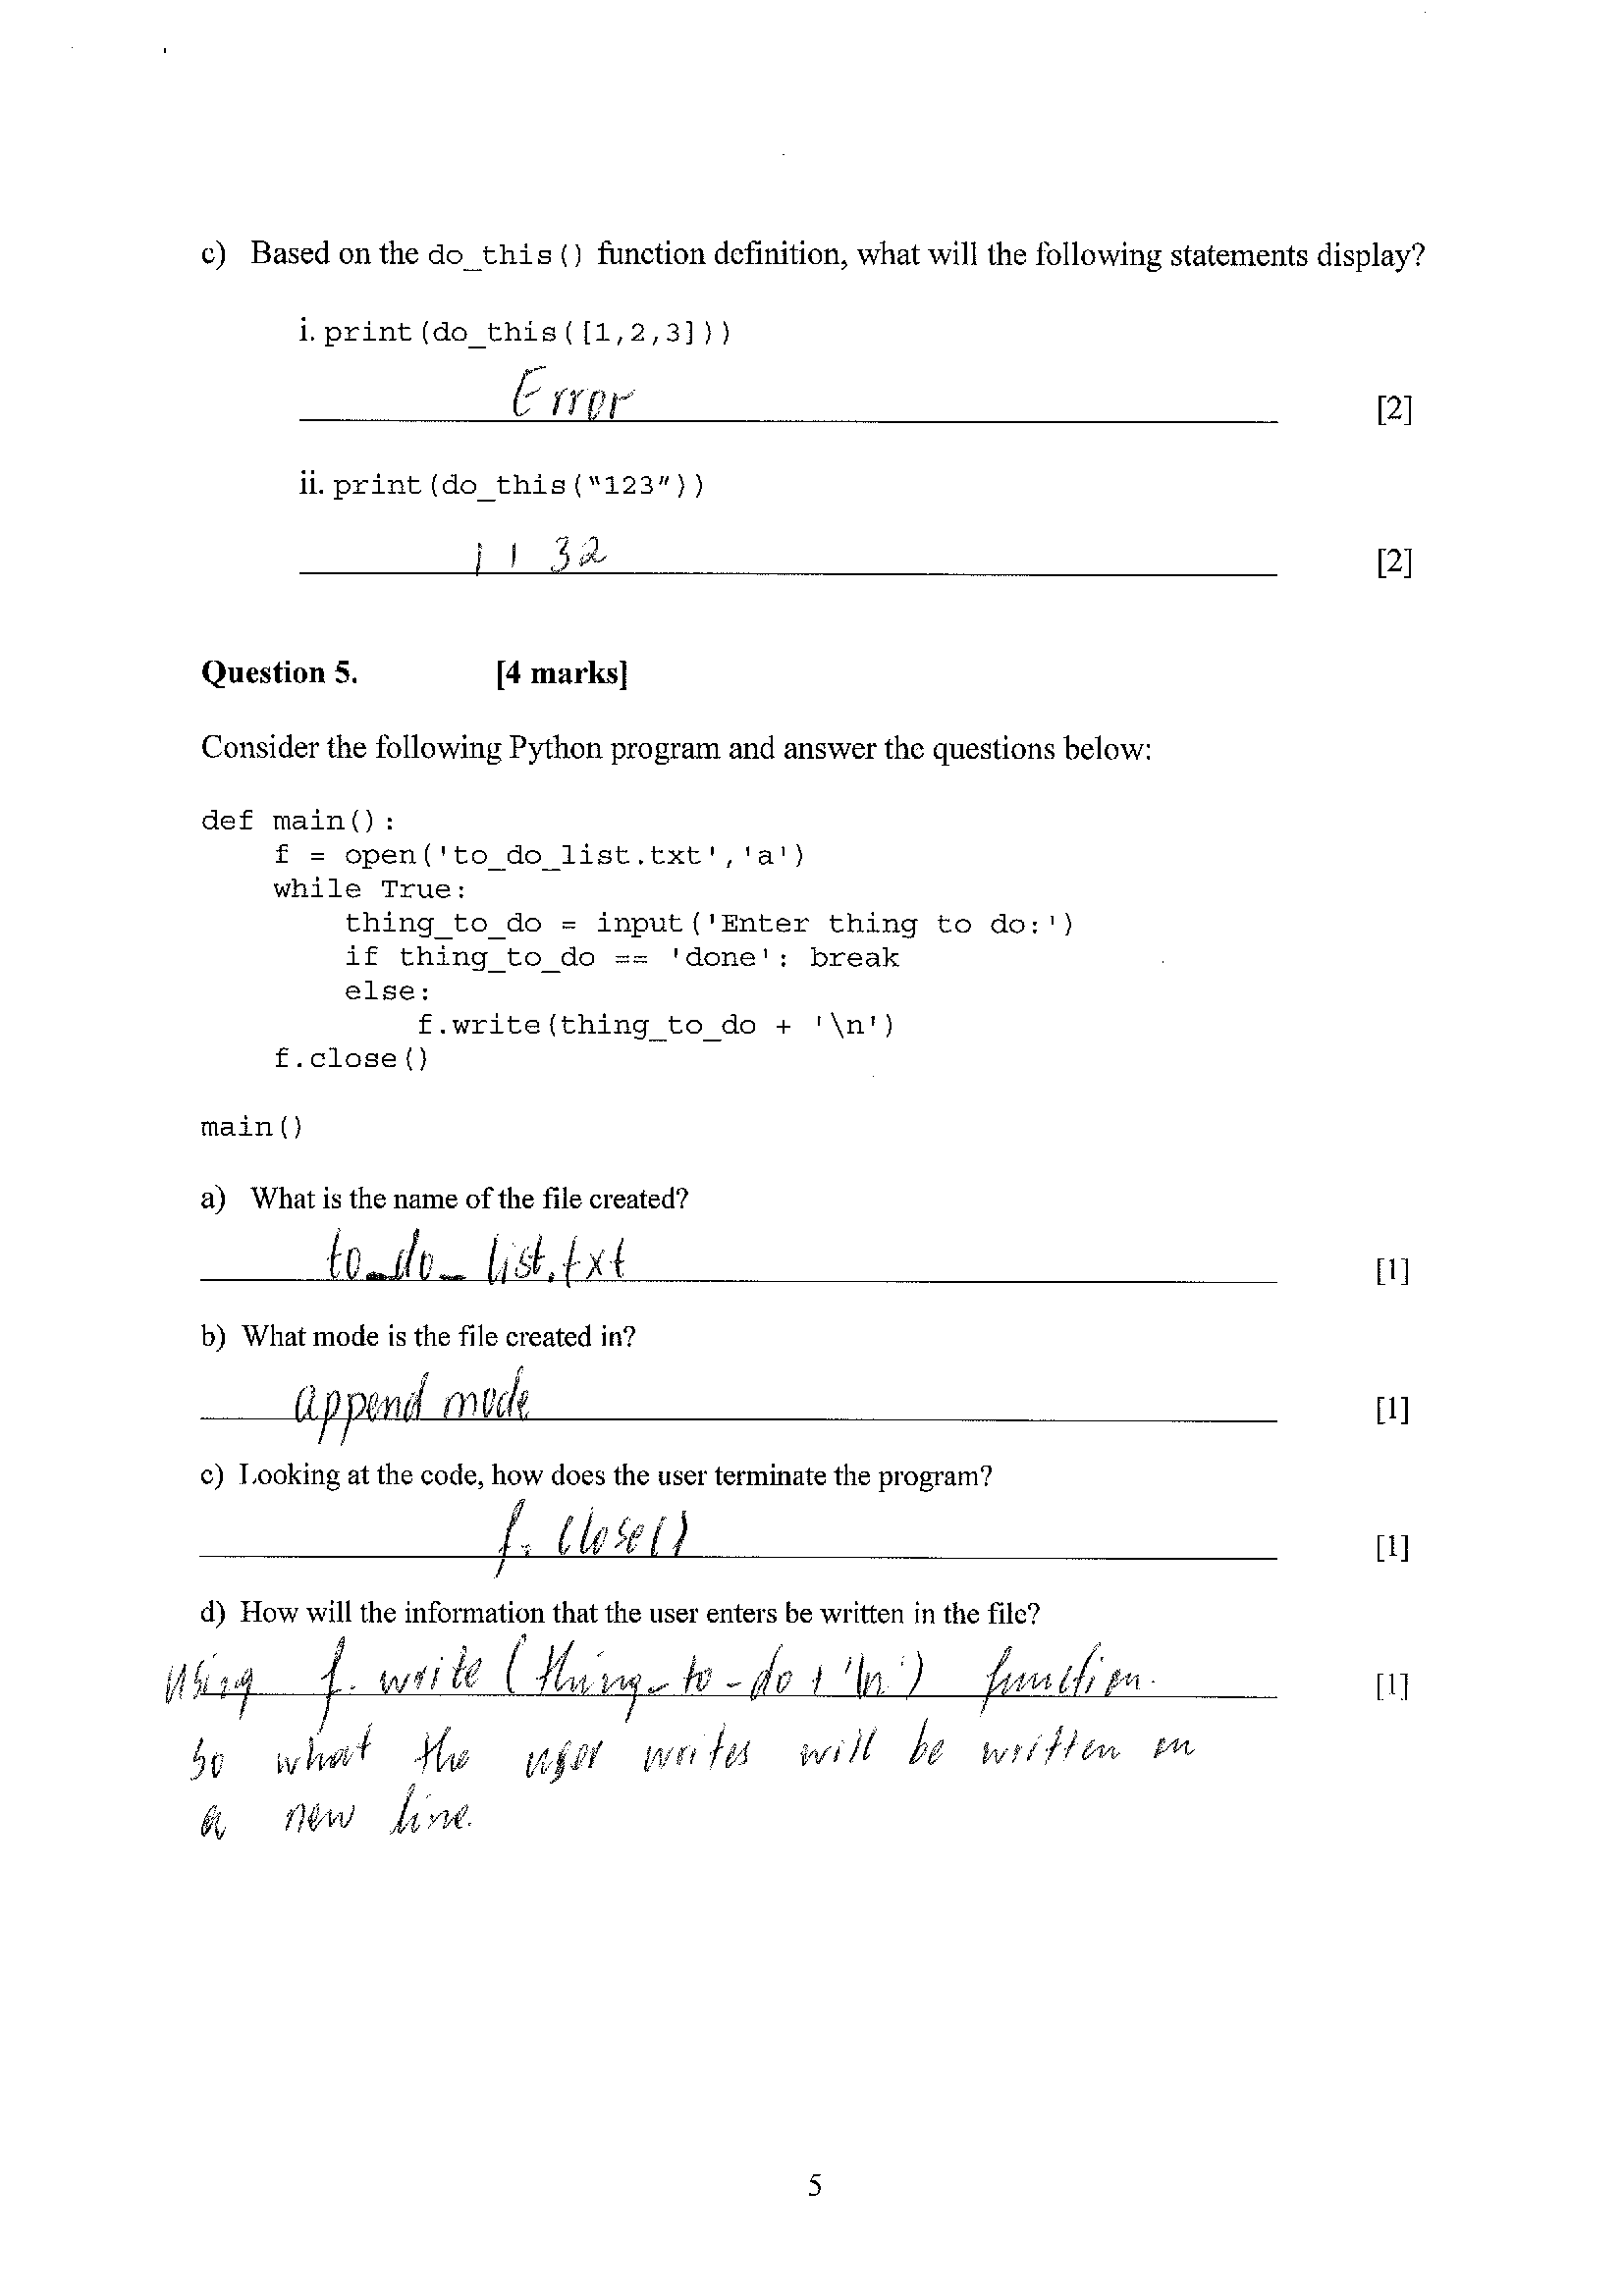 c) Based on the do_this() function definition, what will the following statements display?
i. print(do_this([1,2,3]))
Error [2]
ii. print(do_this("123"))
1 1 32 [2]
Question 5. [4 marks]
Consider the following Python program and answer the questions below:
def main():
    f = open('to_do_list.txt','a')
    while True:
        thing_to_do = input('Enter thing to do:')
        if thing_to_do == 'done': break
        else:
            f.write(thing_to_do + '\n')
    f.close()
main()
a) What is the name of the file created?
to_do_list.txt [1]
b) What mode is the file created in?
append mode [1]
c) Looking at the code, how does the user terminate the program?
f.close() [1]
d) How will the information that the user enters be written in the file?
using f.write(thing_to-do + '\n') function. [1]
so what the user writes will be written on
a new line.
5